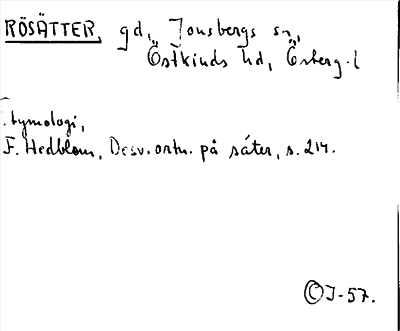 RÖSÄTTER, gd, Jonsbergs sn,
Östkinds hd, Österg. l
Etymologi,
F. Hedblom, De sv. ortn. på säter, s. 214.
Ⓒ I-57.